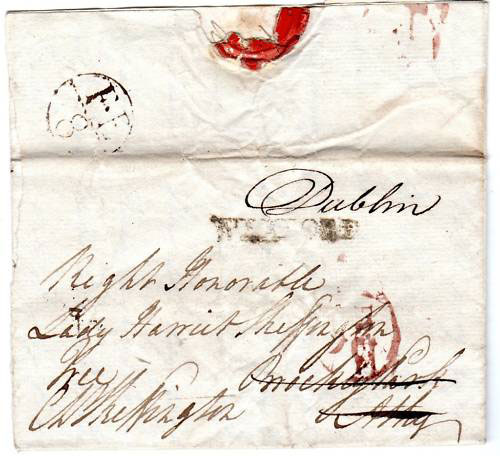 FE
8
Dublin
WEXFORD
Right Honorable
Lady Harriet Skeffington
Free
Skeffington
Athy